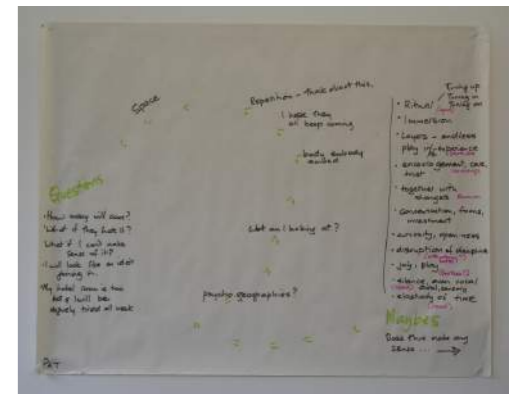 Space
Repetition - think about this.
I hope they
all keep coming
body already
What am I looking at?
psycho geographies?
Questions
- How many will come?
- What if they hate it?
What if I can't make
sense of it?
- I will look like an idiot
joining in.
- My hotel room is too
hot & I will be
tired all week
PAT
• Ritual
Tuning up
Tuning in
Tuning on
• Immersion
• Layers - endless
play in/experience
• encouragement, care,
trust
• together with
strangers
• concentration, focus,
investment
• curiosity, openness
• disruption of discipline
• joy, play
• silence, even vocal
• elasticity of time
Maybes
Does this make any
sense ...